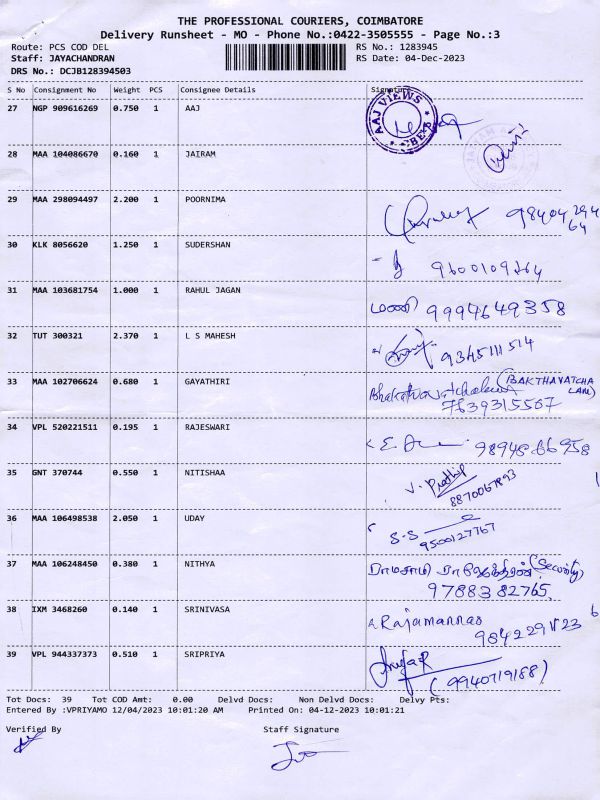 THE PROFESSIONAL COURIERS, COIMBATORE
Delivery Runsheet - MO - Phone No.:0422-3505555 - Page No.:3
Route: PCS COD DEL RS No.: 1283945
Staff: JAYACHANDRAN RS Date: 04-Dec-2023
DRS No.: DCJB128394503
S No Consignment No Weight PCS Consignee Details Signature
27 NGP 909616269 0.750 1 AAJ
AAJ VIEWS
28 MAA 104086670 0.160 1 JAIRAM
29 MAA 298094497 2.200 1 POORNIMA
98404294
64
30 KLK 8056620 1.250 1 SUDERSHAN
9600109264
31 MAA 103681754 1.000 1 RAHUL JAGAN
மணி 9994649358
32 TUT 300321 2.370 1 L S MAHESH
9345111514
33 MAA 102706624 0.680 1 GAYATHIRI
(BAKTHAVATCHA
LAM)
7639315567
34 VPL 520221511 0.195 1 RAJESWARI
35 GNT 370744 0.550 1 NITISHAA
V. Prathip
8870067893
36 MAA 106498538 2.050 1 UDAY
S-S
9500127767
37 MAA 106248450 0.380 1 NITHYA
ராமசாமி (Security)
9788382765
38 IXM 3468260 0.140 1 SRINIVASA
Rajamannao
39 VPL 944337373 0.510 1 SRIPRIYA
(9940719188)
Tot Docs: 39 Tot COD Amt: 0.00 Delvd Docs: Non Delvd Docs: Delvy Pts:
Entered By :VPRIYAMO 12/04/2023 10:01:20 AM Printed On: 04-12-2023 10:01:21
Verified By Staff Signature